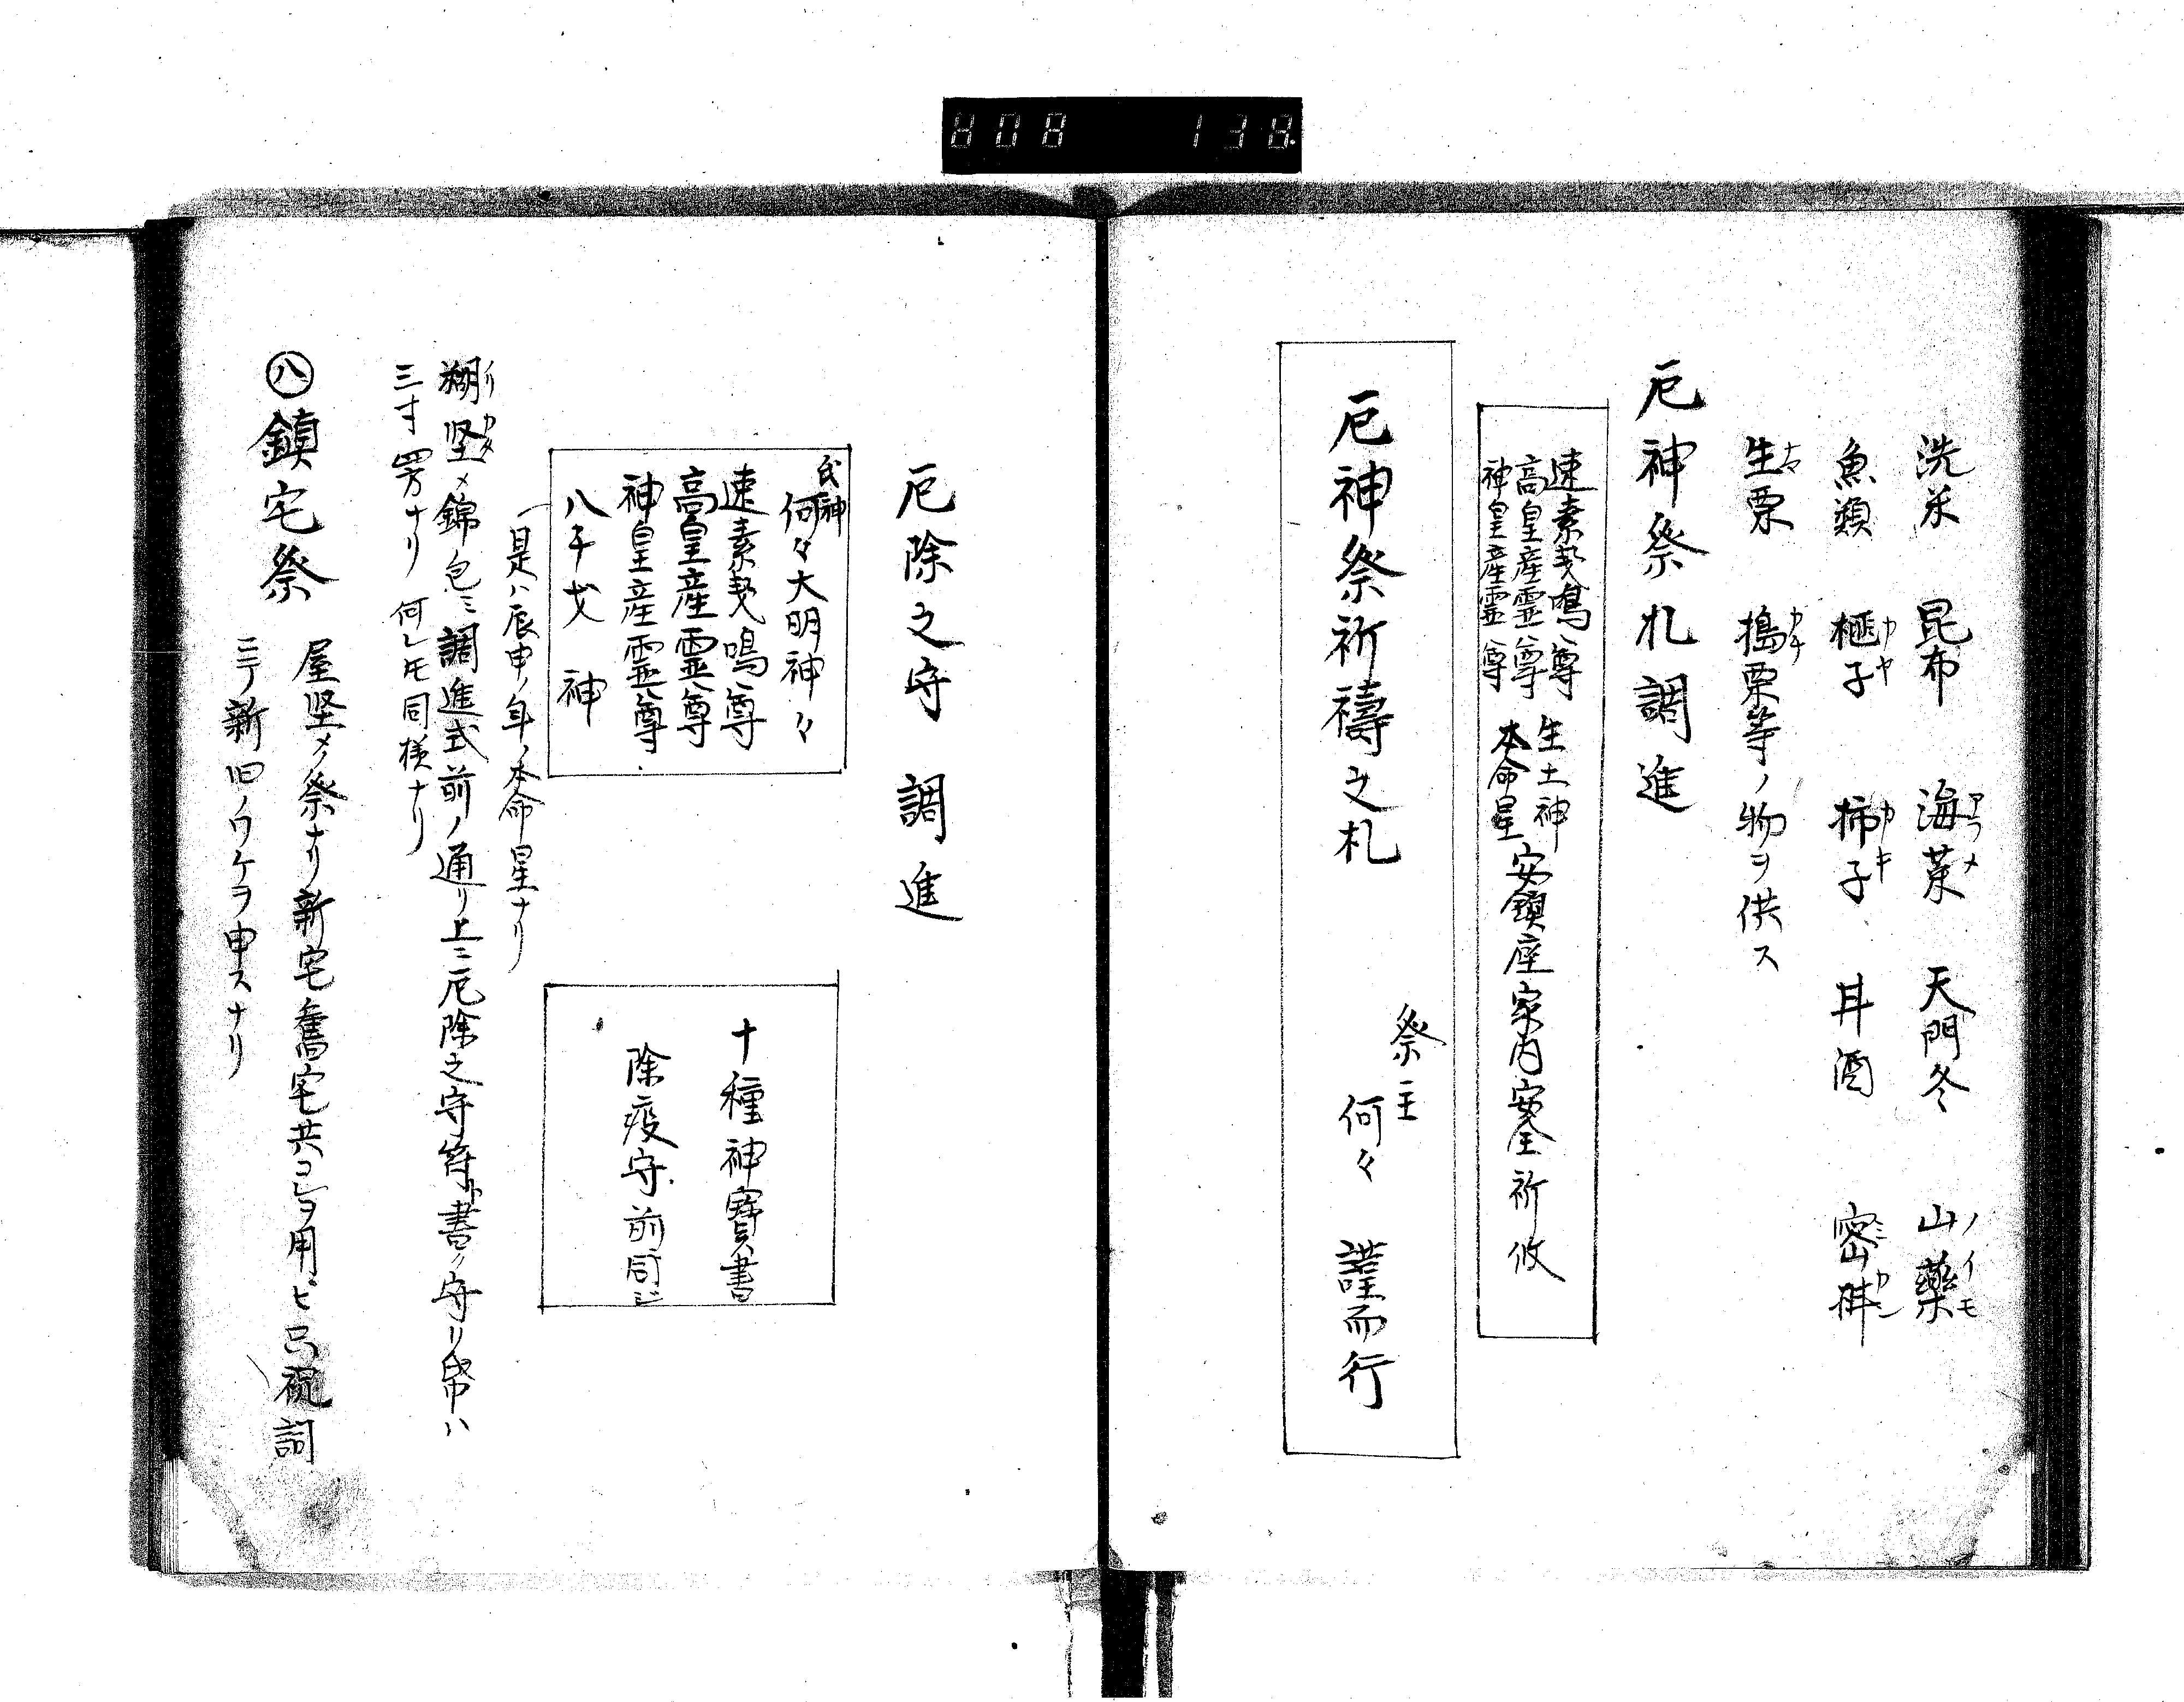 808 138
洗米 昆布 海菜 天門冬 山藥
アラメ
ノイモ
魚類 榧子 柿子 丼酒 密餅
カヤ
カキ
生栗 搗栗等ノ物ヲ供ス
カチ
厄神祭札調進
速素戔鳴尊
高皇産霊尊
神皇産霊尊
生土神
本命星
安鎮座家内安全祈攸
厄神祭祈禱之札
祭主
何々 謹而行
厄除之守 調進
氏神
何々大明神々
速素戔鳴尊
高皇産霊尊
神皇産霊尊
八千戈神
十種神寶書
除疫守前同ジ
是ハ辰申ノ年ノ本命星ナリ
糊堅メ錦包ミ調進式前ノ通リ上ニ厄除之守等ト書ク守リ幣ハ
ノリ カタ
三寸四方ナリ 何レモ同様ナリ
㊇鎮宅祭
屋堅メノ祭ナリ新宅舊宅共コレヲ用ヒ只祝詞
ニテ新旧ノワケヲ申スナリ